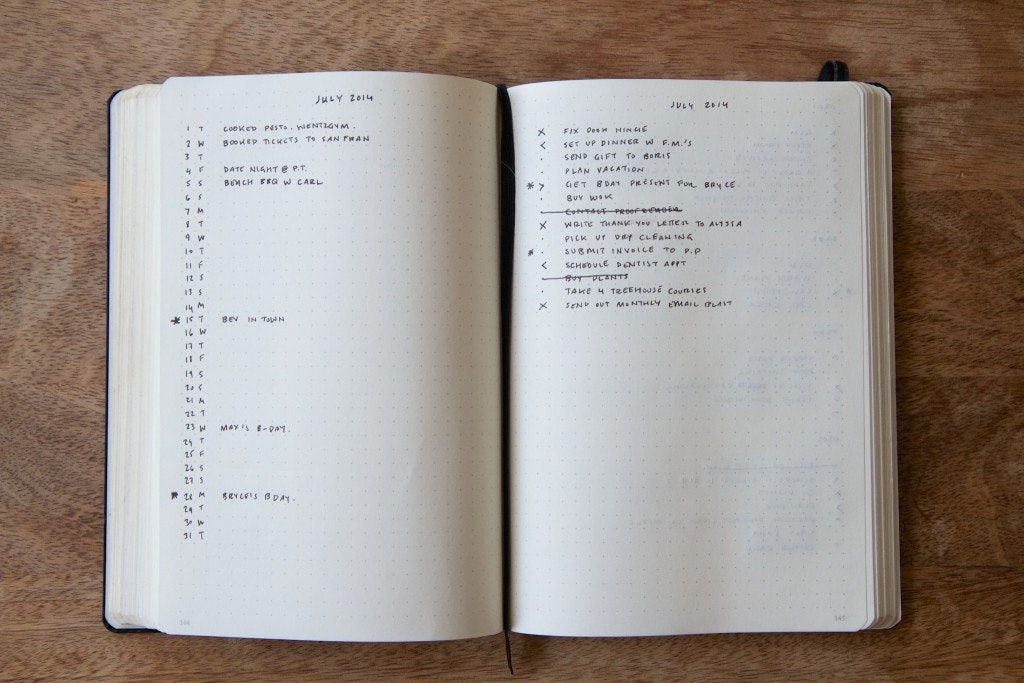 JULY 2014
1 T COOKED PESTO. WENT 2 GYM.
2 W BOOKED TICKETS TO SAN FRAN
3 T
4 F DATE NIGHT @ P.T.
5 S BEACH BBQ W CARL
6 S
7 M
8 T
9 W
10 T
11 F
12 S
13 S
14 M
* 15 T BEV IN TOWN
16 W
17 T
18 F
19 S
20 S
21 M
22 T
23 W MAX'S B-DAY.
24 T
25 F
26 S
27 S
* 28 M BRYCE'S BDAY.
29 T
30 W
31 T
144
JULY 2014
X FIX DOOR HINGE
< SET UP DINNER W F.M.'S
· SEND GIFT TO BORIS
· PLAN VACATION
* > GET BDAY PRESENT FOR BRYCE
· BUY WOK
CONTACT PROOFREADER
X WRITE THANK YOU LETTER TO ALYSSA
· PICK UP DRY CLEANING
* · SUBMIT INVOICE TO P.P
< SCHEDULE DENTIST APPT
BUY PLANTS
· TAKE 4 TREEHOUSE COURSES
X SEND OUT MONTHLY EMAIL BLAST
145